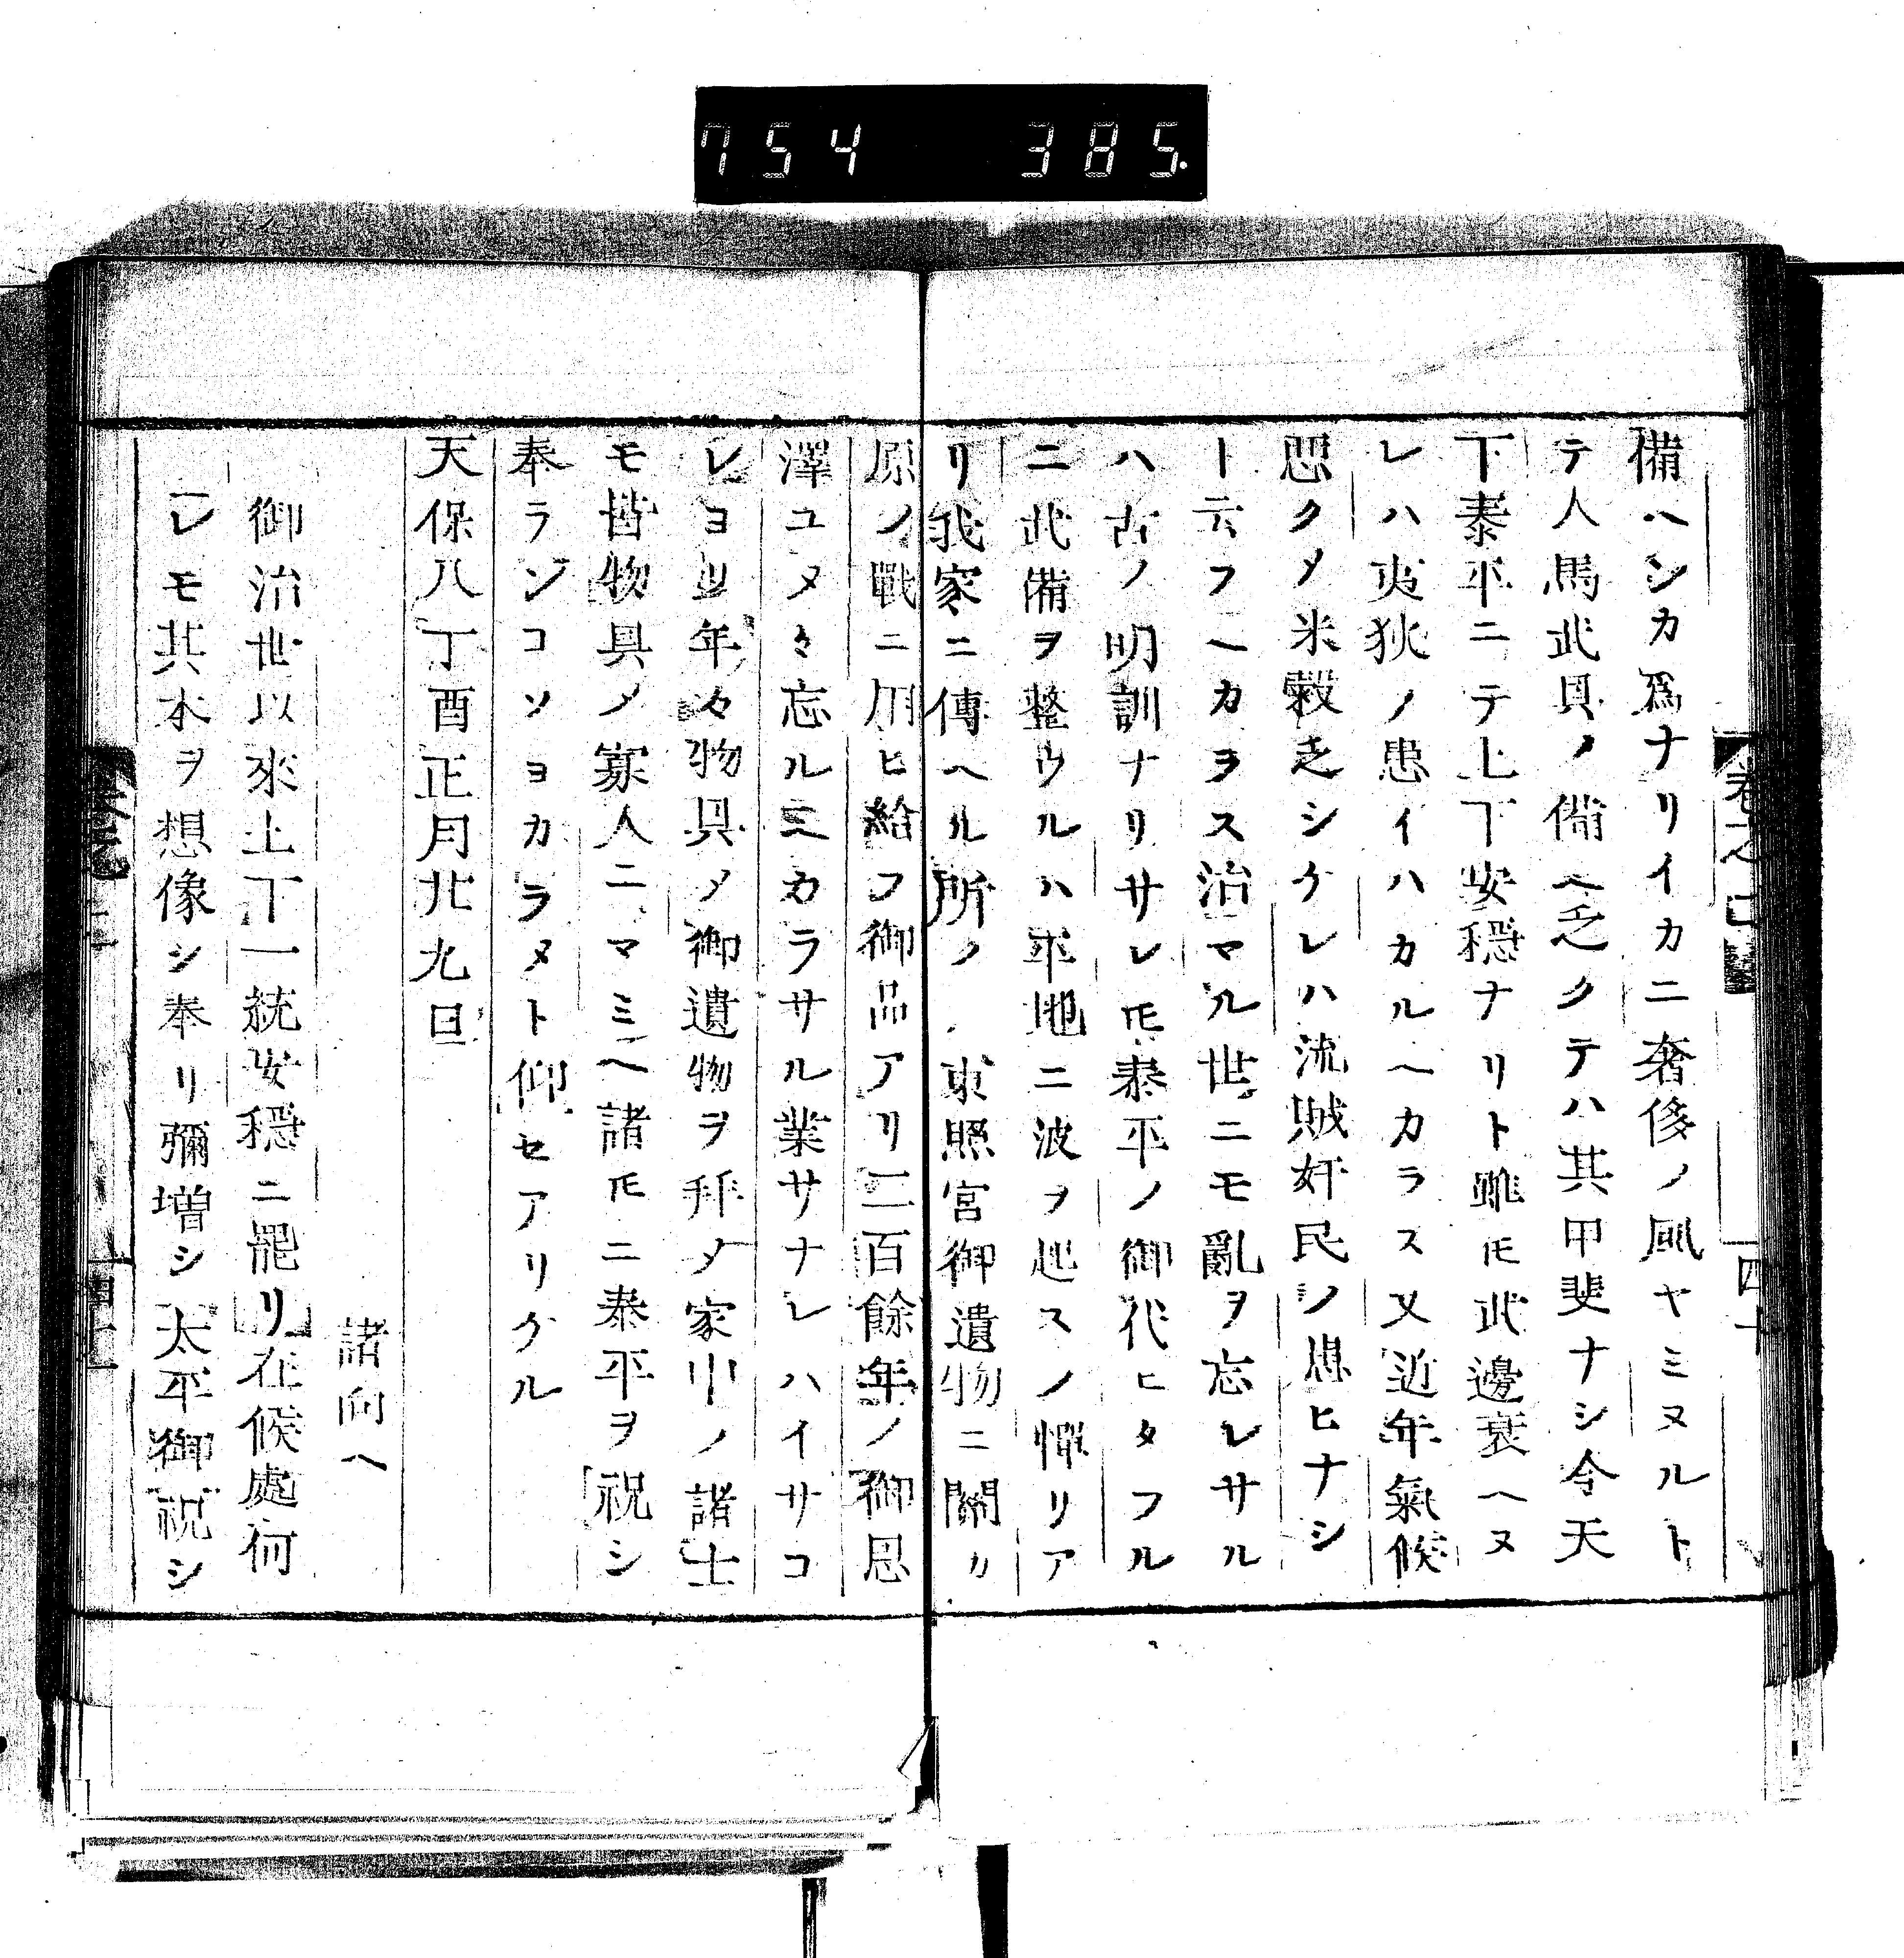 754 385.
備ヘンカ爲ナリイカニ奢侈ノ風ヤミヌルト
テ人馬武具ノ備ヘ乏クテハ其甲斐ナシ今天
下泰平ニテ上下安穩ナリト雖𪜈武邊衰ヘヌ
レハ夷狄ノ患イハカルヘカラス又近年氣候
惡クメ米糓乏シケレハ流賊奸民ノ愚ヒナシ
ト云フヘカヲス治マル世ニモ亂ヲ忘レサル
ハ古ノ明訓ナリサレ𪜈泰平ノ御代ヒタフル
ニ武備ヲ整ウルハ平地ニ波ヲ起スノ憚リア
リ我家ニ傳ヘル所ノ東照宮御遺物ニ關カ
原ノ戰ニ用ヒ給フ御品アリ二百餘年ノ御恩
澤ユメ〻忘ルヘカラサル業サナレハイサコ
レヨリ年々物具ノ御遺物ヲ拜メ家中ノ諸士
モ皆物具メ寡人ニマミヘ諸𪜈ニ泰平ヲ祝シ
奉ラジコソヨカラメト仰セアリケル
天保八丁酉正月廿九日
諸向ヘ
御治世以來上下一統安穩ニ罷リ在候處何
レモ其本ヲ想像シ奉リ彌增シ太平御祝シ
卷之
四十